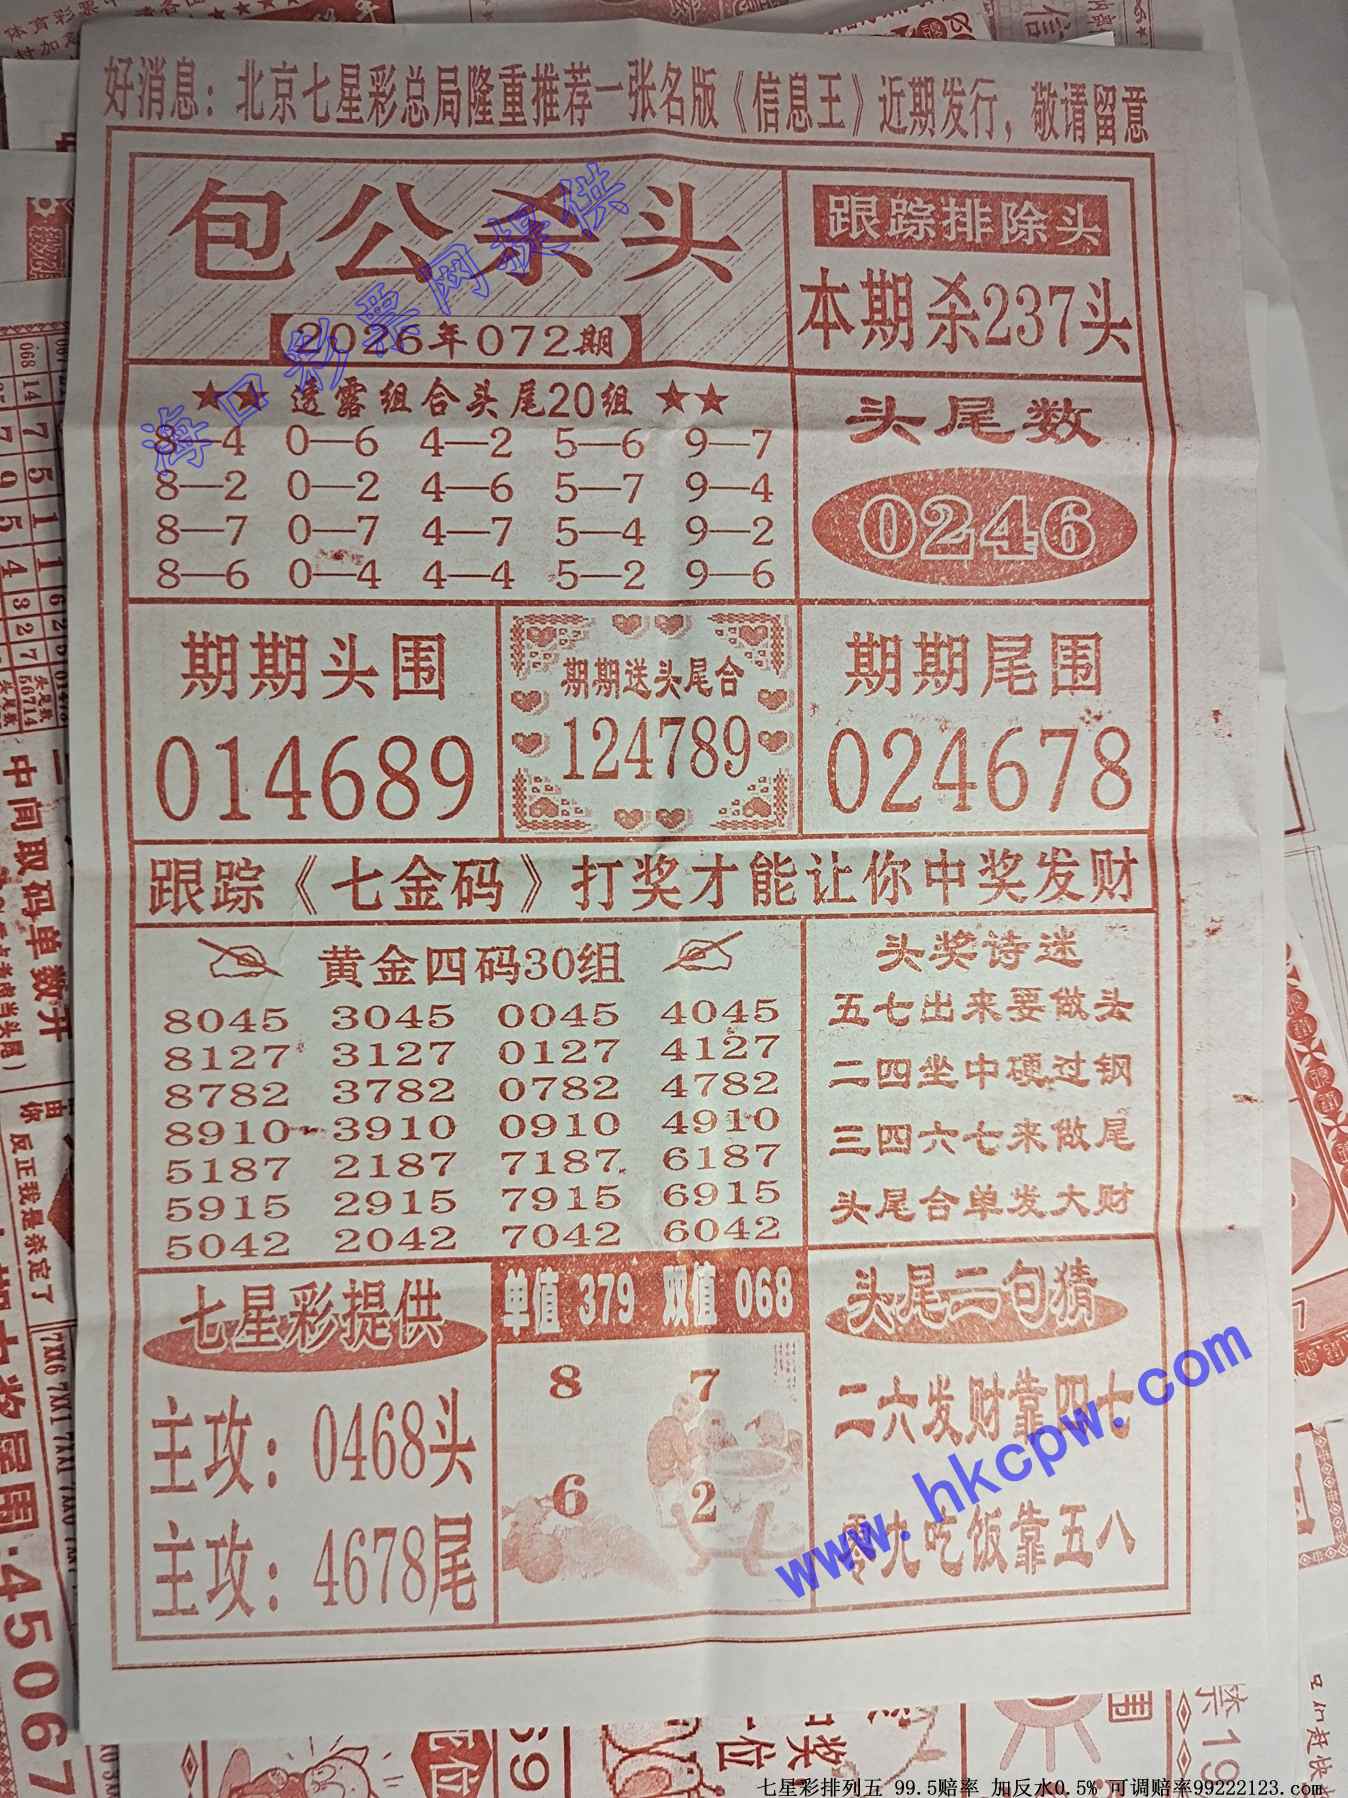 好消息：北京七星彩总局隆重推荐一张名版《信息王》近期发行，敬请留意
包公杀头
【2026年072期】
跟踪排除头
本期杀237头
★★ 透露组合头尾20组 ★★
8—4 0—6 4—2 5—6 9—7
8—2 0—2 4—6 5—7 9—4
8—7 0—7 4—7 5—4 9—2
8—6 0—4 4—4 5—2 9—6
头尾数
0246
期期头围
014689
期期送头尾合
124789
期期尾围
024678
跟踪《七金码》打奖才能让你中奖发财
黄金四码30组
8045 3045 0045 4045
8127 3127 0127 4127
8782 3782 0782 4782
8910 3910 0910 4910
5187 2187 7187 6187
5915 2915 7915 6915
5042 2042 7042 6042
头奖诗迷
五七出来要做头
二四坐中硬过钢
三四六七来做尾
头尾合单发大财
七星彩提供
主攻：0468头
主攻：4678尾
单值 379 双值 068
8 7
6 2
头尾二句猜
二六发财靠四七
零九吃饭靠五八
海口彩票网提供
www.hkcpw.com
中间取码单数开
你反正我是杀定了
45067
七星彩排列五 99.5赔率 加反水0.5% 可调赔率99222123.com